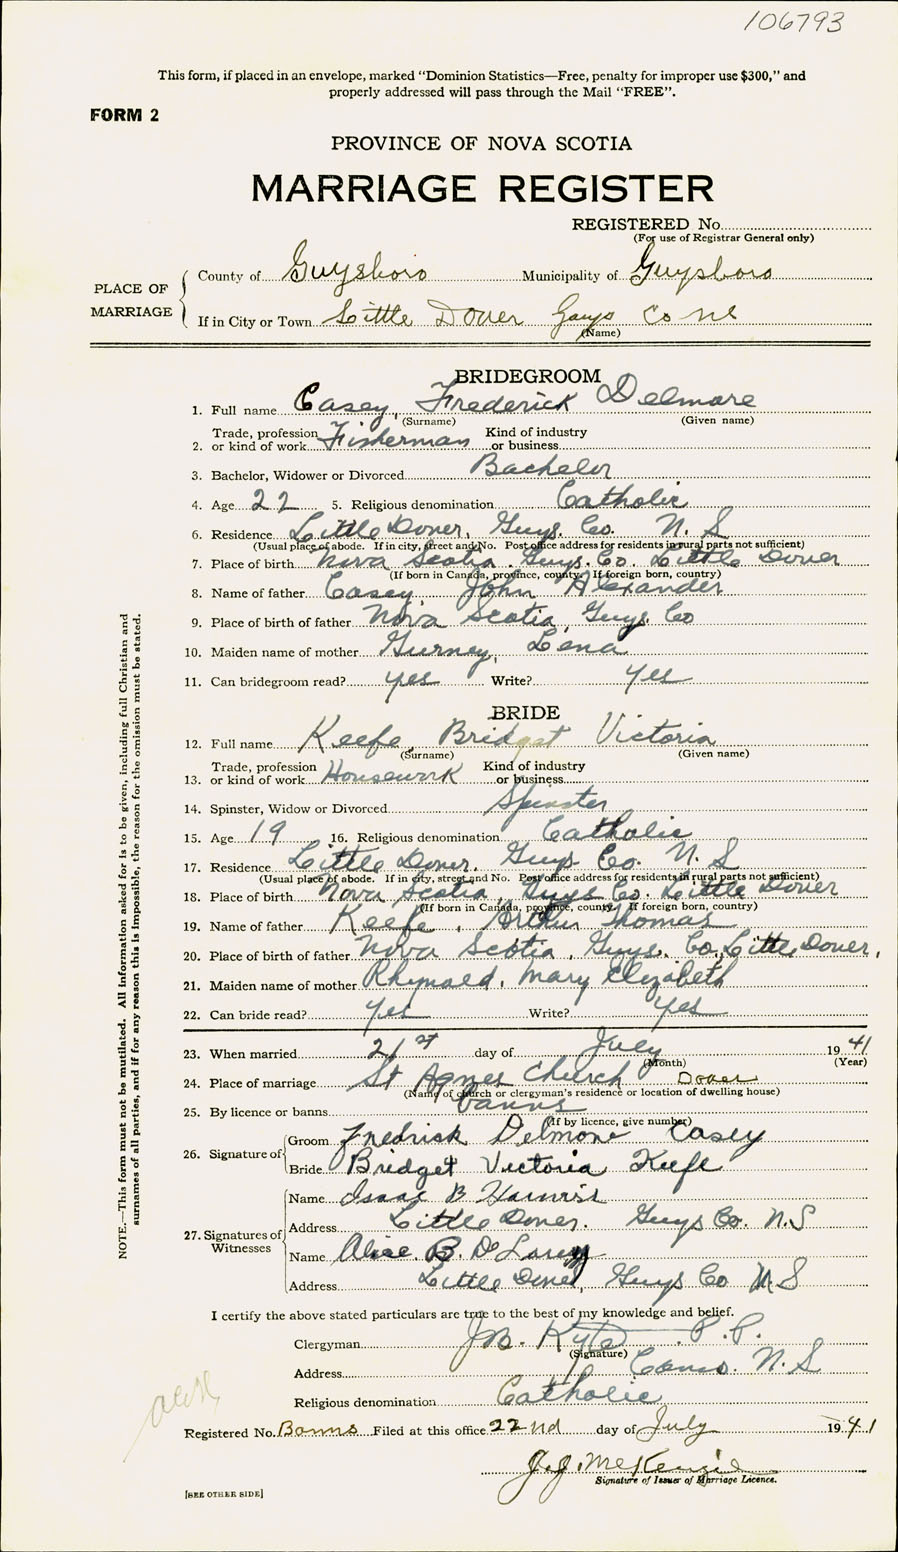 106793
This form, if placed in an envelope, marked “Dominion Statistics—Free, penalty for improper use $300,” and
properly addressed will pass through the Mail “FREE”.
FORM 2
PROVINCE OF NOVA SCOTIA
MARRIAGE REGISTER
REGISTERED No.
(For use of Registrar General only)
PLACE OF MARRIAGE
County of Guysboro Municipality of Guysboro
If in City or Town Little Dover Guys Co NS
(Name)
BRIDEGROOM
1. Full name Casey, Frederick Delmore
(Surname) (Given name)
2. Trade, profession or kind of work Fisherman Kind of industry or business
3. Bachelor, Widower or Divorced Bachelor
4. Age 22 5. Religious denomination Catholic
6. Residence Little Dover, Guys. Co. N. S
(Usual place of abode. If in city, street and No. Post office address for residents in rural parts not sufficient)
7. Place of birth Nova Scotia. Guys. Co. Little Dover
(If born in Canada, province, county. If foreign born, country)
8. Name of father Casey, John Alexander
9. Place of birth of father Nova Scotia, Guys. Co
10. Maiden name of mother Gurney, Lena
11. Can bridegroom read? yes Write? yes
BRIDE
12. Full name Keefe, Bridget Victoria
(Surname) (Given name)
13. Trade, profession or kind of work Housework Kind of industry or business
14. Spinster, Widow or Divorced Spinster
15. Age 19 16. Religious denomination Catholic
17. Residence Little Dover, Guys Co. N. S
(Usual place of abode. If in city, street and No. Post office address for residents in rural parts not sufficient)
18. Place of birth Nova Scotia, Guys Co. Little Dover
(If born in Canada, province, county. If foreign born, country)
19. Name of father Keefe, Arthur Thomas
20. Place of birth of father Nova Scotia, Guys. Co, Little Dover,
21. Maiden name of mother Rhynold, Mary Elizabeth
22. Can bride read? yes Write? yes
23. When married 21st day of July 1941
(Month) (Year)
24. Place of marriage St Agnes Church Dover
(Name of church or clergyman's residence or location of dwelling house)
25. By licence or banns banns
(If by licence, give number)
26. Signature of
Groom Fredrick Delmore Casey
Bride Bridget Victoria Keefe
27. Signatures of Witnesses
Name Isaac B
Address Little Dover. Guys Co. N.S
Name Alice B.
Address Little Dover, Guys Co N S
I certify the above stated particulars are true to the best of my knowledge and belief.
Clergyman Kyte P.P.
(Signature)
Address Canso. N.S
Religious denomination Catholic
Registered No. Banns Filed at this office 22nd day of July 1941
J.J. McKenzie
Signature of Issuer of Marriage Licence.
[SEE OTHER SIDE]
NOTE.—This form must not be mutilated. All information asked for is to be given, including full Christian and
surnames of all parties, and if for any reason this is impossible, the reason for the omission must be stated.